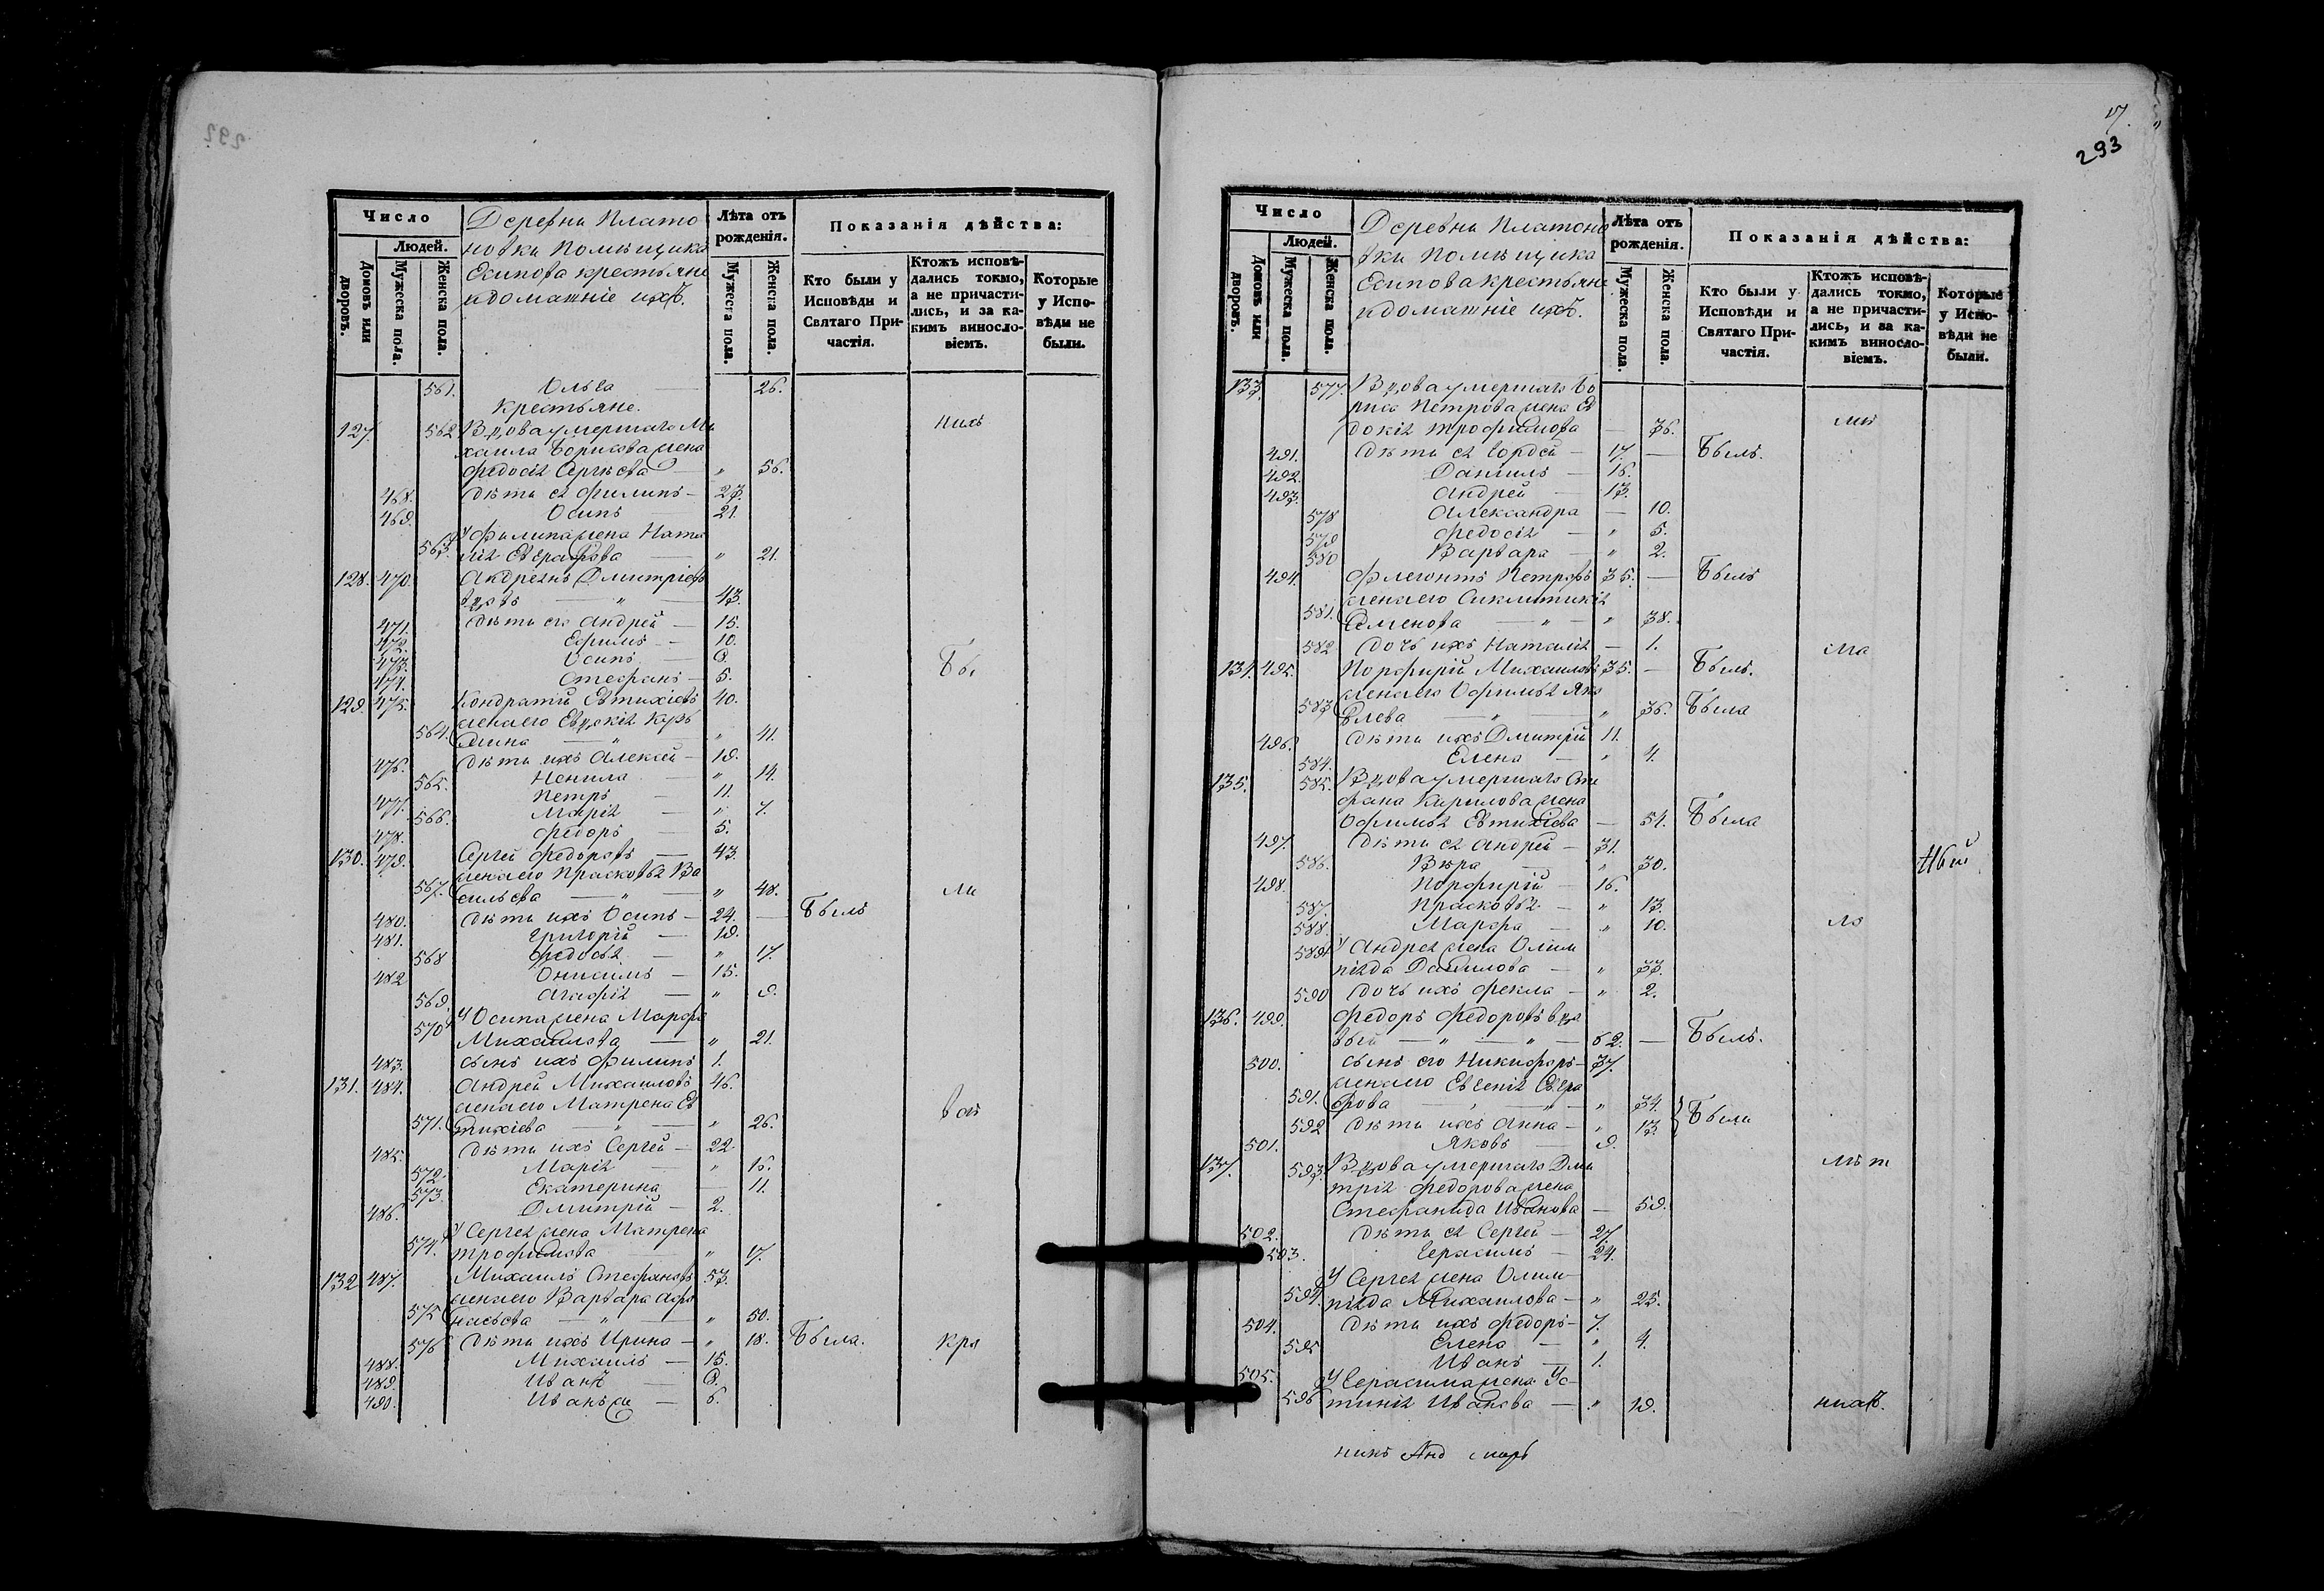 293
Число
Людей.
Домовъ или дворовъ.
Мужеска пола.
Женска пола.
Деревни Плато
новки помѣщика
Есипова крестьяне
и домашніе ихъ.
Лѣта отъ рожденія.
Мужеска пола.
Женска пола.
Показанія дѣйства:
Кто были у Исповѣди и Святаго Причастія.
Ктожъ исповѣдались токмо, а не причастились, и за какимъ винословіемъ.
Которые у Исповѣди не были.
561. Ольга — 26.
Крестьяне.
127. 562 Вдова умершаго Ми
хаила Борисова жена
Федосія Сергѣева — " 56.
468. Дѣти ея Филипъ — 23.
469. Осипъ — 21.
У Филипа жена Ната
563. лія Евграфова — " 21.
128. 470. Андреянъ Дмитріевъ
вдовъ — " — 43.
471. Дѣти его Андрей — 15.
472. Ефимъ — 10.
473. Осипъ — 9.
474. Стефанъ — 5.
129. 475. Кондратій Евтихіевъ 40.
жена его Евдокія Козь
564. мина — " — " 41.
476. Дѣти ихъ Алексей — 19.
565. Ненила — " 14.
477. Петръ — 11.
566. Марія — " 7.
478. Федоръ — 5.
130. 479. Сергей Федоровъ — 43.
жена его Прасковья Ва
567. сильева — " — " 48.
480. Дѣти ихъ Осипъ — 24. — Былъ
481. Григорій — 19.
568 Федосья — " 17.
482 Онисимъ — 15.
569. Агафія — " 9.
У Осипа жена Марфа
570 Михаилова — " 21.
483. Сынъ ихъ Филипъ 1.
131. 484. Андрей Михаиловъ 46.
жена его Матрена Ев
571. тихіева — " — " 26.
485. Дѣти ихъ Сергей — 22
572. Марія — " 15.
573. Екатерина — 11.
486. Дмитрій — 2.
У Сергея жена Матрена
574. Трофимова " 17.
132 487. Михаилъ Стефановъ 53.
жена его Варвара Афо
575 насьева — " — " 50.
576 Дѣти ихъ Ирина — " 18. Была.
488. Михаилъ — 15.
489. Иванъ — 9.
490. Иванъ — 6.
17.
293
Число
Людей.
Домовъ или дворовъ.
Мужеска пола.
Женска пола.
Деревни Платоно
вки помѣщика
Есипова крестьяне
и домашніе ихъ.
Лѣта отъ рожденія.
Мужеска пола.
Женска пола.
Показанія дѣйства:
Кто были у Исповѣди и Святаго Причастія.
Ктожъ исповѣдались токмо, а не причастились, и за какимъ винословіемъ.
Которые у Исповѣди не были.
133. 577. Вдова умершаго Бо
риса Петрова жена Ев
докія Трофимова — 36.
491. Дѣти ея Гордей — 17. — Былъ.
492. Даниилъ — 16.
493. Андрей — 13.
578 Александра — 10.
579 Федосія — " 5.
580 Варвара — " 2.
494. Флегонтъ Петровъ 35. — Былъ
жена его Синклитикія
581. Семенова — " — " 38.
582 Дочь ихъ Наталія — 1.
134. 495. Порфирій Михаиловъ 35. — Былъ.
жена его Офимья Яко
583 влева — " — " 36. Была
496. Дѣти ихъ Дмитрій 11.
584. Елена — " 4.
135. 585. Вдова умершаго Сте
фана Кирилова жена
Офимья Евтихіева — 54. Была
497. Дѣти ея Андрей — 31.
586. Вѣра — " 30.
498. Порфирій — 16.
587. Прасковья — " 13.
588. Марфа — " 10.
589 У Андрея жена Олим
піяда Данилова — " 33.
590 Дочь ихъ Фекла — " 2.
136. 499. Федоръ Федоровъ вдо
вый — " — " — 62. — Былъ.
500. Сынъ его Никифоръ — 37.
жена его Евгенія Евгра
591. фова — " — " 34.
592 Дѣти ихъ Анна — " 13. Были
501. Яковъ — 9.
137. 593. Вдова умершаго Дми
трія Федорова жена
Стефанида Иванова — 59.
502. Дѣти ея Сергей — 27
503. Герасимъ — 24.
У Сергея жена Олим-
594. піяда Михаилова — " 25.
504. Дѣти ихъ Федоръ — 7.
595 Елена — " 4.
505. Иванъ — 1.
У Герасима жена Ус-
596 тинія Иванова — " 19.